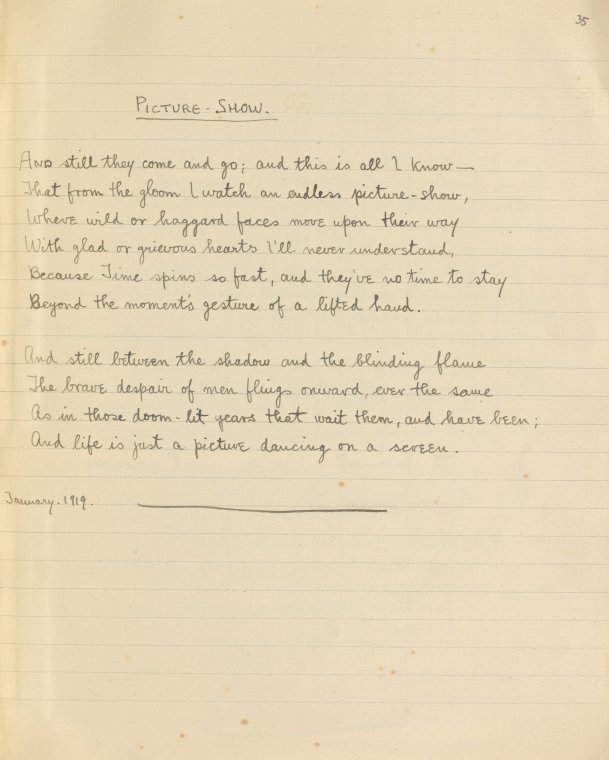 35
PICTURE-SHOW.
AND still they come and go; and this is all I know—
That from the gloom I watch an endless picture-show,
Where wild or haggard faces move upon their way
With glad or grievous hearts I'll never understand,
Because Time spins so fast, and they've no time to stay
Beyond the moment's gesture of a lifted hand.
And still between the shadow and the blinding flame
The brave despair of men flings onward, ever the same
As in those doom-lit years that wait them, and have been;
And life is just a picture dancing on a screen.
January. 1919.